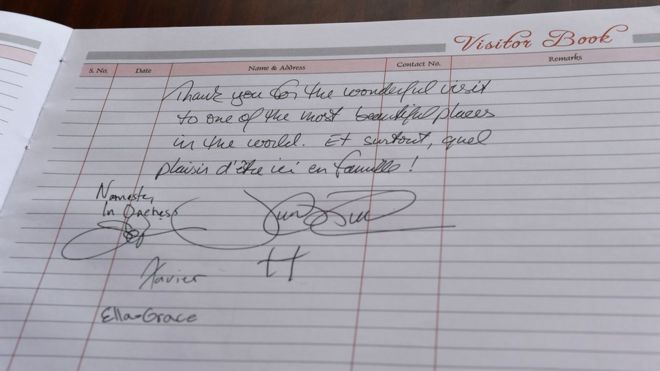 Visitor Book
S. No. Date Name & Address Contact No. Remarks
Thank you for the wonderful visit
to one of the most beautiful places
in the world. Et surtout, quel
plaisir d'être ici en famille!
Namaste,
In
Xavier
Ella-Grace